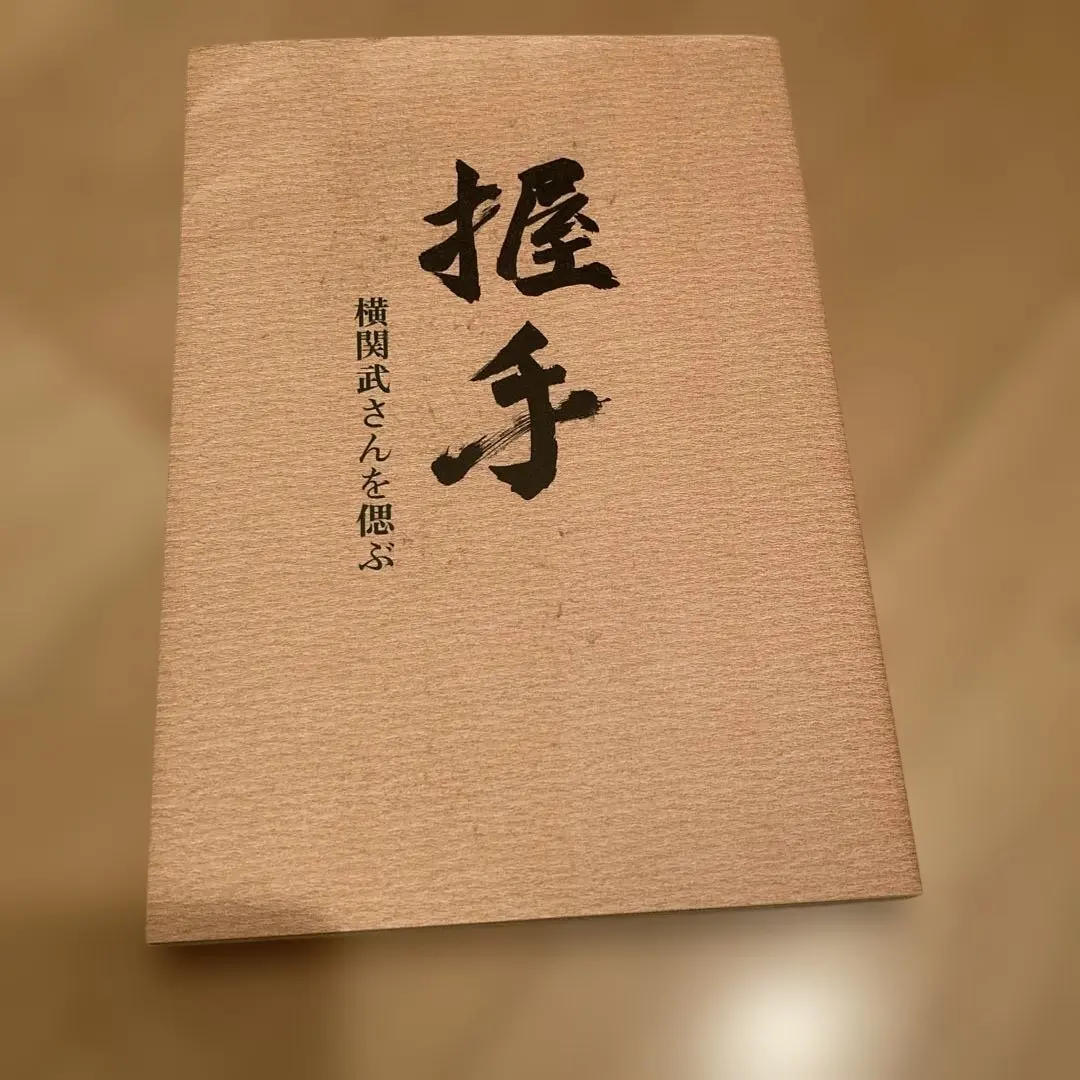 握手
横関武さんを偲ぶ